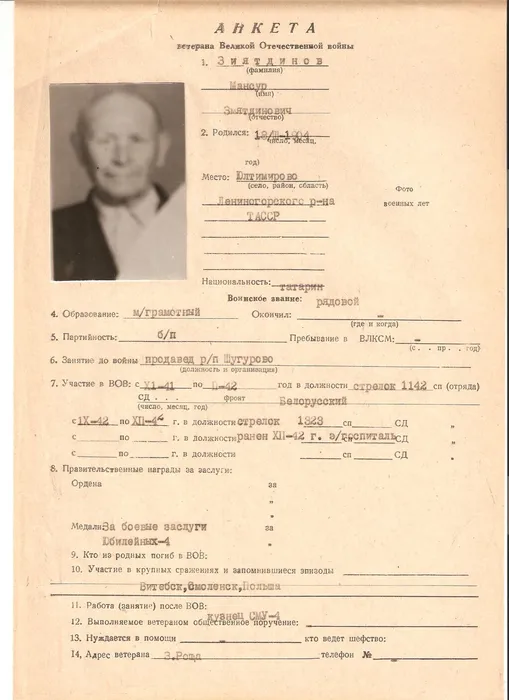 АНКЕТА
ветерана Великой Отечественной войны
1. Зиятдинов
(фамилия)
Мансур
(имя)
Зиятдинович
(отчество)
2. Родился:
число, месяц,
год)
Место: Юлтимирово
(село, район, область)
Фото
военных лет
Лениногорского р-на
ТАССР
Национальность: татарин
Воинское звание: рядовой
4. Образование: м/грамотный Окончил: -
(где и когда)
5. Партийность: б/п Пребывание в ВЛКСМ: -
(с . . пр . . год)
6. Занятие до войны продавец р/п Шугурово
(должность и организация)
7. Участие в ВОВ: с XI-41 по II-42 год в должности стрелок 1142 сп (отряда)
СД . . . фронт Белорусский
(число, месяц, год)
с IX-42 по г. в должности стрелок 1323 сп СД "
с по г. в должности ранен XII-42 г. э/госпиталь СД "
с по г. в должности сп СД "
8. Правительственные награды за заслуги:
Ордена за
"
"
"
Медали За боевые заслуги за
Юбилейных-4 "
9. Кто из родных погиб в ВОВ:
10. Участие в крупных сражениях и запомнившиеся эпизоды
Витебск, Смоленск, Польша
11. Работа (занятие) после ВОВ:
кузнец СМУ-4
12. Выполняемое ветераном общественное поручение:
13. Нуждается в помощи - кто ведет шефство:
14, Адрес ветерана З.Роща телефон №